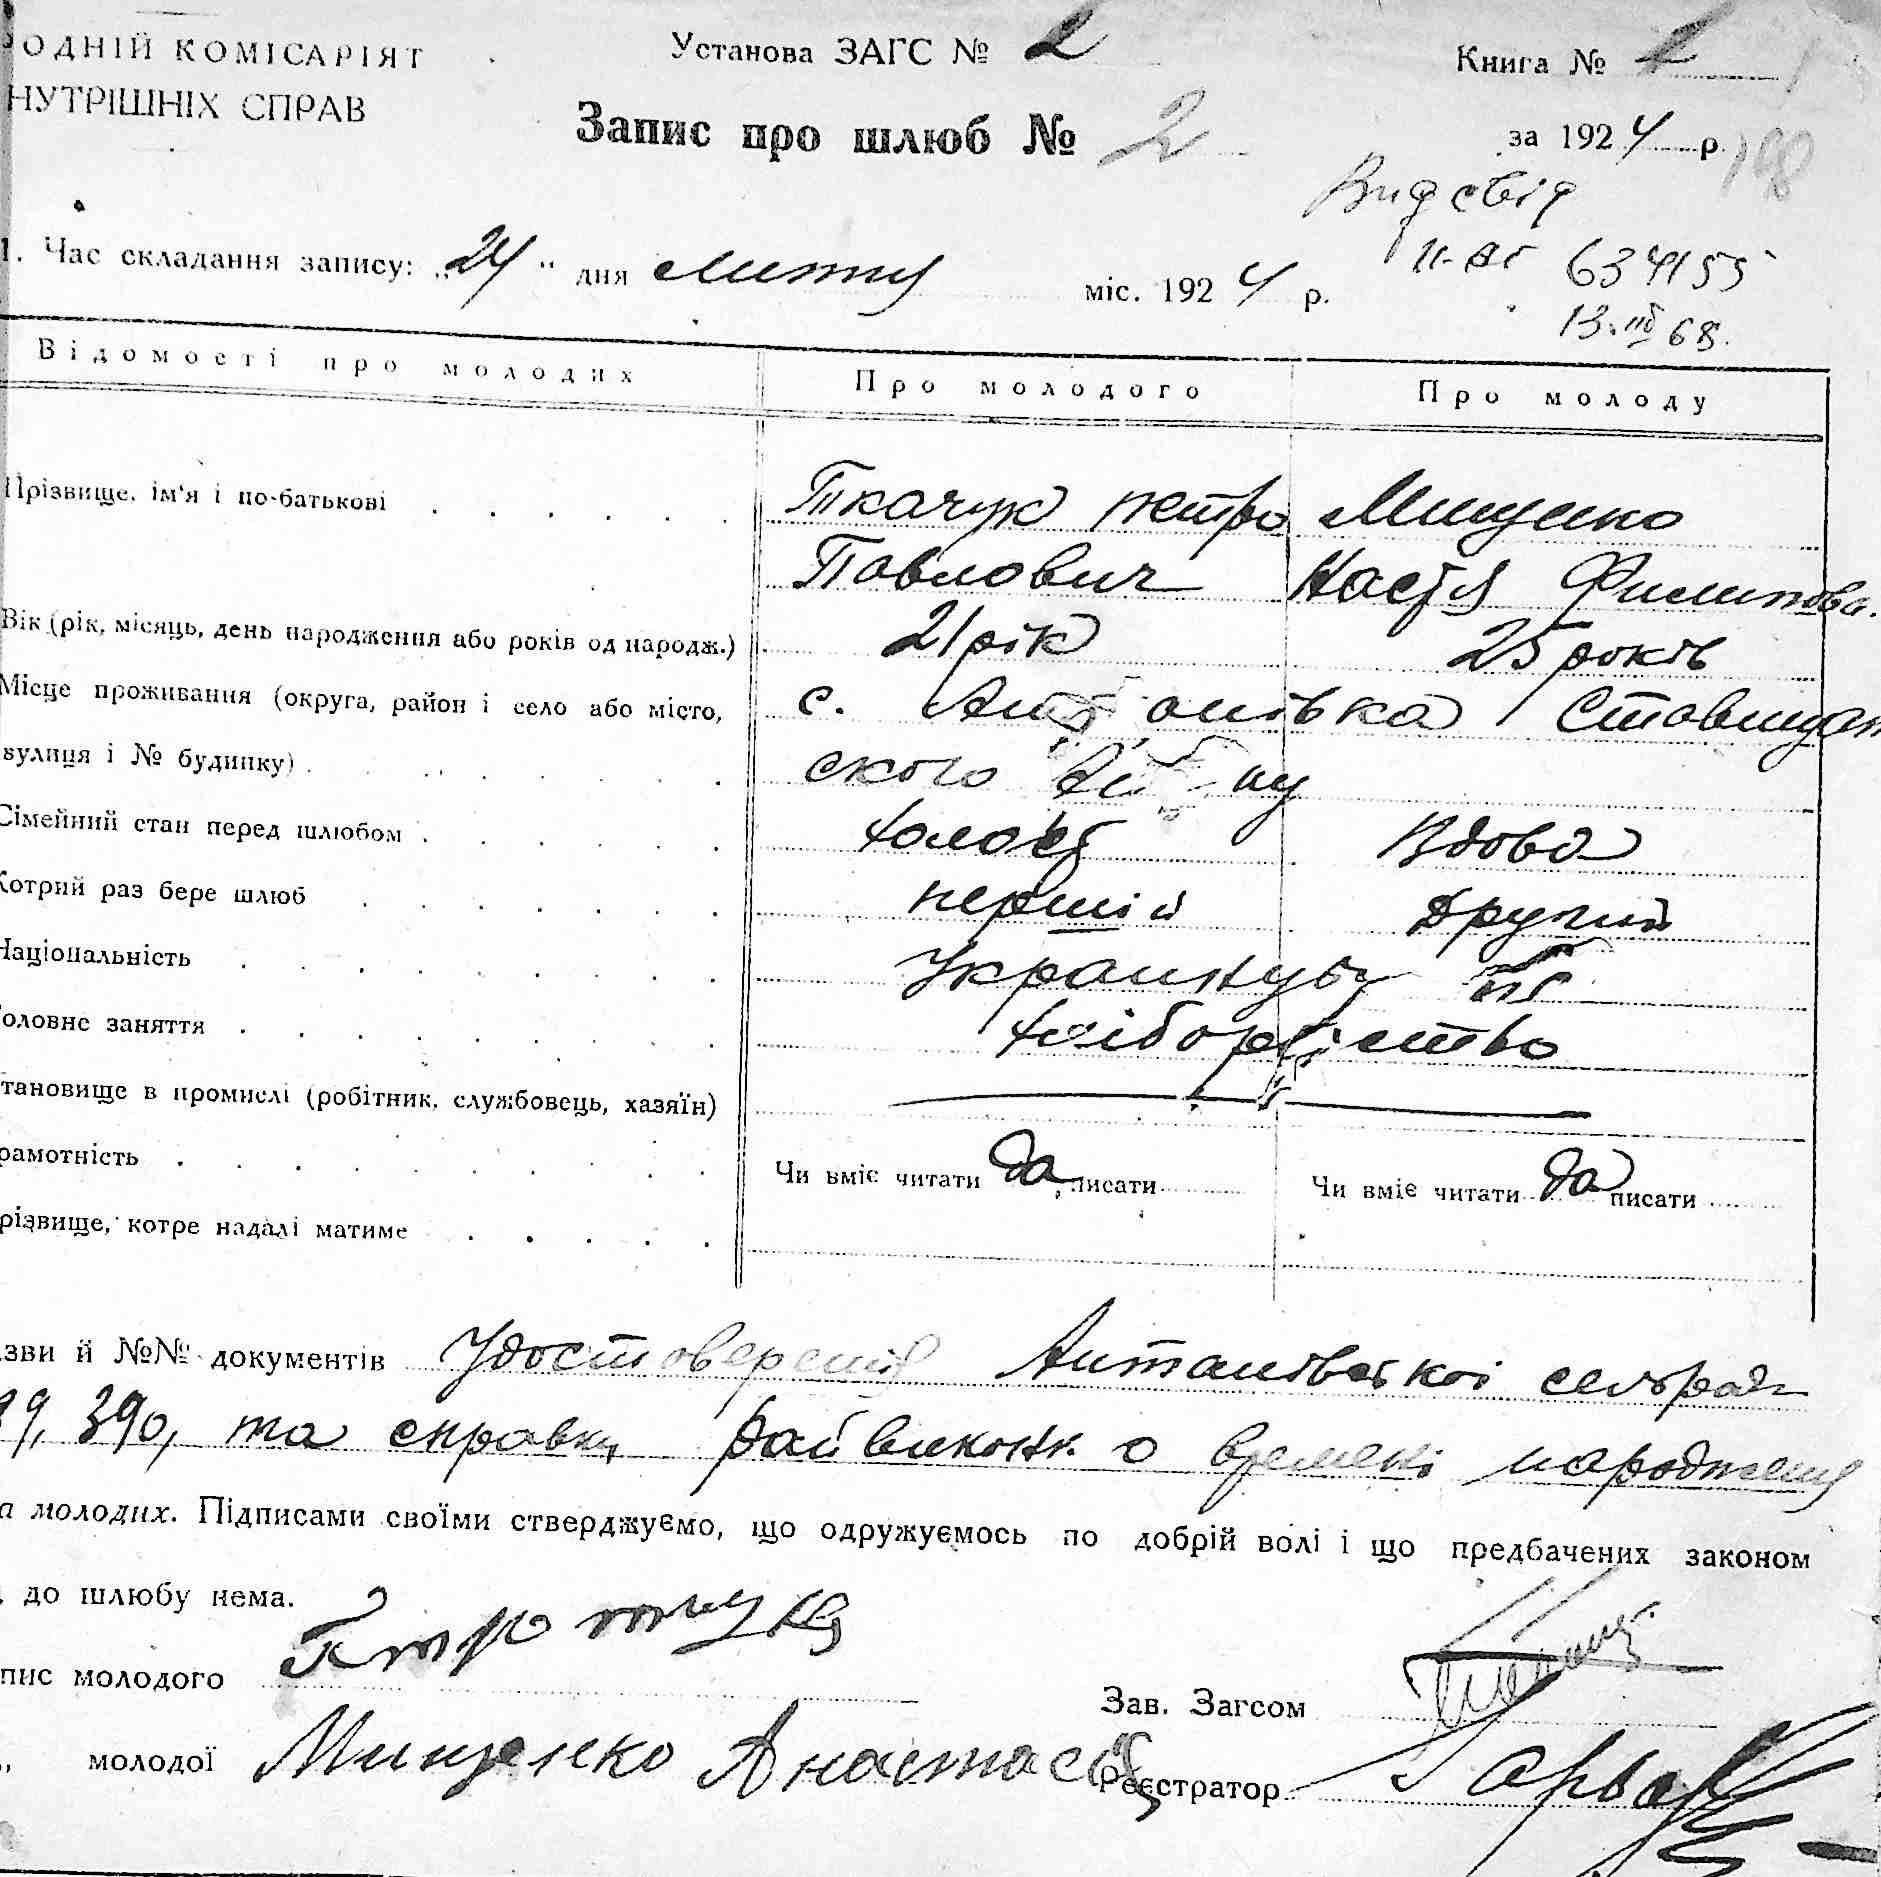 ОДНІЙ КОМІСАРІЯТ
НУТРІШНІХ СПРАВ
Установа ЗАГС № 2
Книга № 1
Запис про шлюб № 2
за 1924 р.
198
Вид свід
634155
13.III 68.
1. Час складання запису: „24“ дня Лютня міс. 1924 р.
Відомості про молодих Про молодого Про молоду
Прізвище, ім'я і по-батькові Ткачук Петро Мищенко
Павлович Настя Филипова.
Вік (рік, місяць, день народження або років од народж.) 21 рік 25 років
Місце проживання (округа, район і село або місто, с. Антонівка Ставищан
вулиця і № будинку) ского
Сімейний стан перед шлюбом холост Вдова
Котрий раз бере шлюб перший Другий
Національність Українці
головне заняття хліборобство
тановище в промислі (робітник, службовець, хазяїн)
рамотність Чи вміє читати да писати Чи вміє читати да писати
різвище, котре надалі матиме
зви й №№ документів Удостоверения Антанівської сельради
39, 390, та справки Райвиконк. о времені народження
а молодих. Підписами своїми стверджуємо, що одружуємось по добрій волі і що предбачених законом
до шлюбу нема.
пис молодого
Зав. Загсом
„ молодої Мищенко Анастасія
Реєстратор